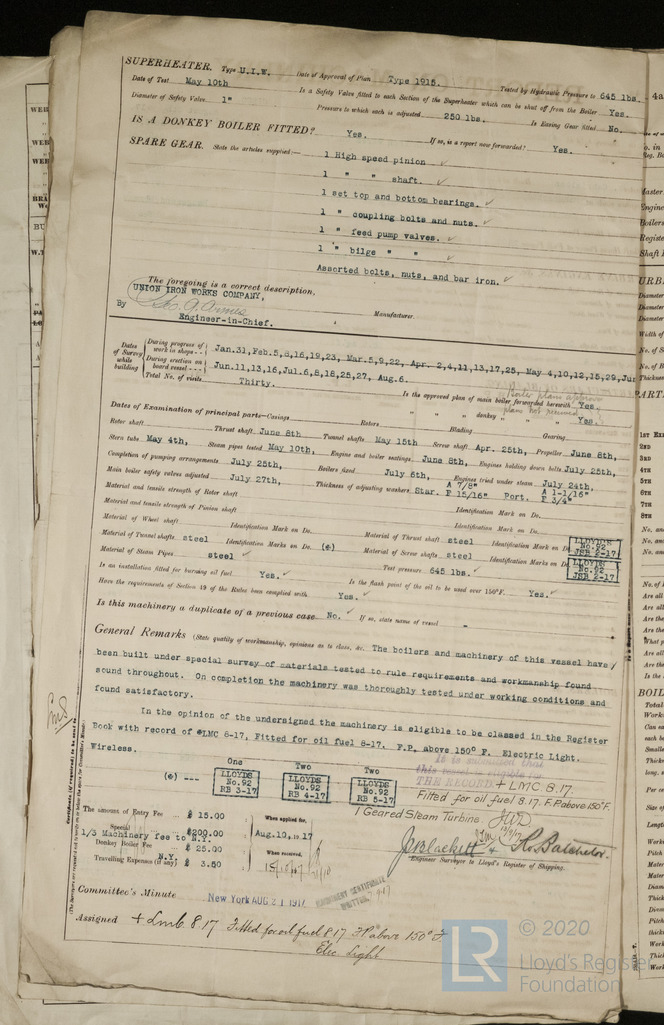 SUPERHEATER. Type U.I.W. Date of Approval of Plan Type 1915. Tested by Hydraulic Pressure to 645 lbs.
Date of Test May 10th Is a Safety Valve fitted to each Section of the Superheater which can be shut off from the Boiler Yes.
Diameter of Safety Valve 1" Pressure to which each is adjusted 250 lbs. Is Easing Gear fitted No.
IS A DONKEY BOILER FITTED? Yes. If so, is a report now forwarded? Yes.
SPARE GEAR. State the articles supplied:—
1 High speed pinion ✓
1 " " shaft. ✓
1 set top and bottom bearings. ✓
1 " coupling bolts and nuts. ✓
1 " feed pump valves. ✓
1 " bilge " " ✓
Assorted bolts, nuts, and bar iron. ✓
The foregoing is a correct description,
UNION IRON WORKS COMPANY,
By Manufacturer.
Engineer-in-Chief.
Dates of Survey while building
During progress of work in shops -- Jan.31,Feb.5,8,16,19,23, Mar.5,9,22, Apr. 2,4,11,13,17,25, May 4,10,12,15,29,Jun
During erection on board vessel --- Jun.11,13,16,Jul.6,8,18,25,27, Aug.6.
Total No. of visits Thirty.
Is the approved plan of main boiler forwarded herewith Yes.
" " " donkey " " " Yes.
Dates of Examination of principal parts—Casings Rotors Blading Gearing
Rotor shaft Thrust shaft June 8th Tunnel shafts May 15th Screw shaft Apr. 25th, Propeller June 8th,
Stern tube May 4th, Steam pipes tested May 10th, Engine and boiler seatings June 8th, Engines holding down bolts July 25th,
Completion of pumping arrangements July 25th, Boilers fixed July 6th, Engines tried under steam July 24th,
Main boiler safety valves adjusted July 27th, Thickness of adjusting washers Star. A 7/8" F 15/16" Port. A 1-1/16" F 3/4"
Material and tensile strength of Rotor shaft Identification Mark on Do.
Material and tensile strength of Pinion shaft Identification Mark on Do.
Material of Wheel shaft Identification Mark on Do. Material of Thrust shaft steel Identification Mark on Do. LLOYDS No.92 JSR 2-17
Material of Tunnel shafts steel Identification Marks on Do. (*) Material of Screw shafts steel Identification Marks on Do. LLOYDS No.92 JSR 2-17
Material of Steam Pipes steel ✓ Test pressure 645 lbs. ✓
Is an installation fitted for burning oil fuel Yes. ✓ Is the flash point of the oil to be used over 150°F. Yes. ✓
Have the requirements of Section 49 of the Rules been complied with Yes. ✓
Is this machinery a duplicate of a previous case No. ✓ If so, state name of vessel -
General Remarks (State quality of workmanship, opinions as to class, &c. The boilers and machinery of this vessel have
been built under special survey of materials tested to rule requirements and workmanship found
sound throughout. On completion the machinery was thoroughly tested under working conditions and
found satisfactory.
In the opinion of the undersigned the machinery is eligible to be classed in the Register
Book with record of *LMC 8-17. Fitted for oil fuel 8-17. F.P. above 150° F. Electric Light.
Wireless.
It is submitted that
this vessel is eligible for
THE RECORD + LMC 8.17.
Fitted for oil fuel 8.17. F.P. above 150°F.
1 Geared Steam Turbine
One Two Two
(*) --- LLOYDS No.92 RB 3-17 LLOYDS No.92 RB 4-17 LLOYDS No.92 RB 5-17
The amount of Entry Fee £ 15.00 When applied for,
Special $200.00 Aug.10, 1917
1/3 Machinery fee to N.Y.
Donkey Boiler Fee £ 25.00 When received,
Travelling Expenses (if any) N.Y. £ 3.50
J Blackett & R. Batchelor.
Engineer Surveyor to Lloyd's Register of Shipping.
Committee's Minute New York AUG 21 1917
Assigned + Lmc. 8.17 Fitted for oil fuel 8.17 FP above 150° F.
Elec Light
© 2020
Lloyd's Register
Foundation
LR